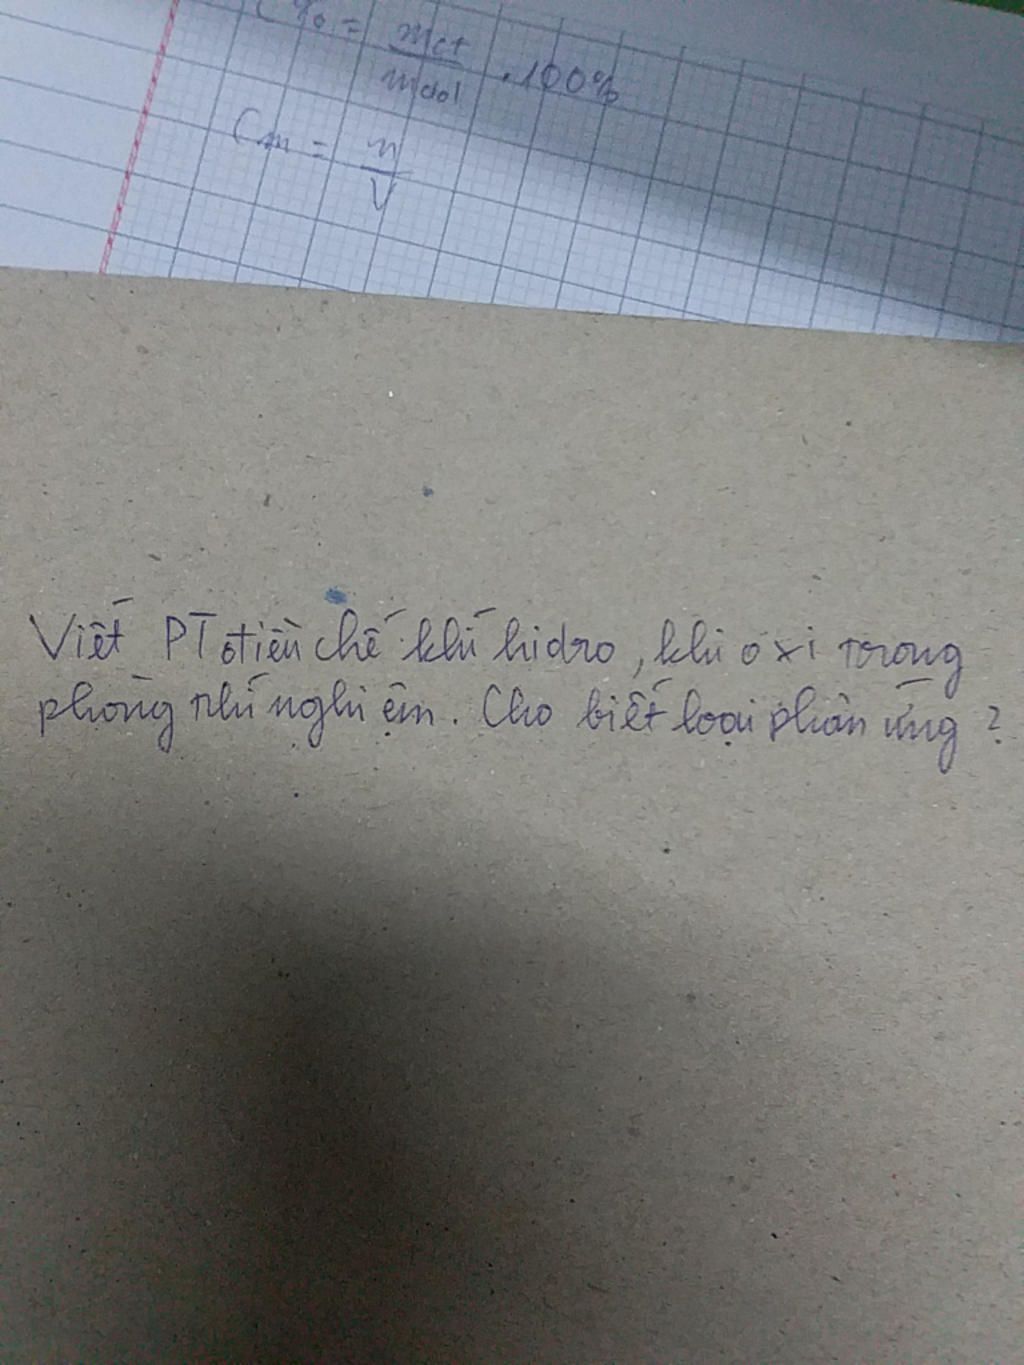 C% = mct / mdd . 100%
Cm = n / V
Viết PT điều chế khí hidro, khí oxi trong
phòng thí nghiệm. Cho biết loại phản ứng ?